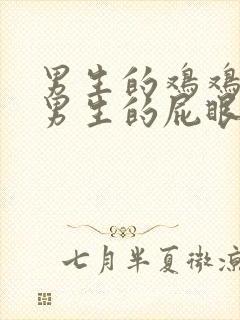 男生的鸡鸡
男生的屁眼
七月半夏微凉